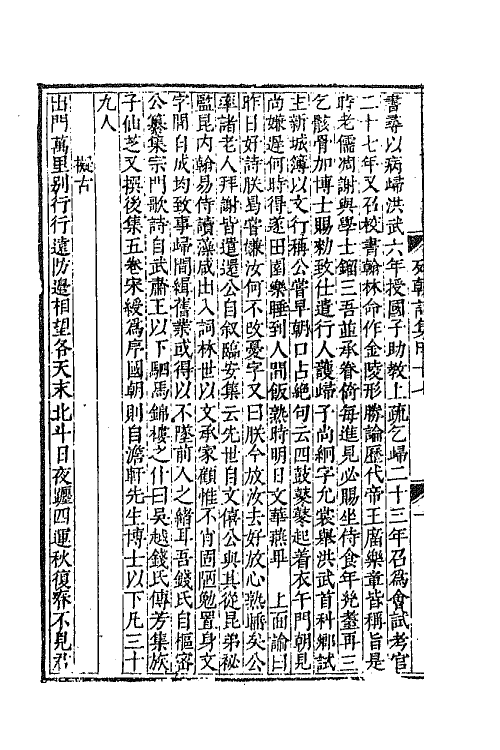 書尋以病歸洪武六年授國子助教上疏乞歸二十三年召爲會試考官
二十七年又召校書翰林命作金陵形勝論歷代帝王廟樂章皆稱旨是
時老儒凋謝與學士劉三吾並承眷倚每進見必賜坐侍食年旣耋再三
乞骸骨加博士賜勑致仕遣行人護歸子尚絅字允裳舉洪武首科鄉試
主新城簿以文行稱公嘗早朝口占絶句云四鼓鼕鼕起着衣午門朝見
尚嫌遲何時得遂田園樂睡到人間飯熟時明日文華燕畢 上面諭曰
昨日好詩朕曷嘗嫌汝何不改憂字又曰朕今放汝去好放心熟睡矣公
率諸老人拜謝皆遣還公自叙臨安集云先世自文僖公與其從昆弟祕
監昆内翰易侍讀藻咸出入詞林世以文承家顧惟不肖固陋勉置身文
字間自成均致事歸間緝舊業或得以不墜前人之緒耳吾錢氏自樞密
公纂集宗門歌詩自武肅王以下駙馬錦樓之什曰吳越錢氏傳芳集族
子仙芝又撰後集五卷宋綬爲序國朝則自澹軒先生博士以下凡三十
九人
擬古
出門萬里别行行遠防邊相望各天末北斗日夜躔四運秋復春不見君